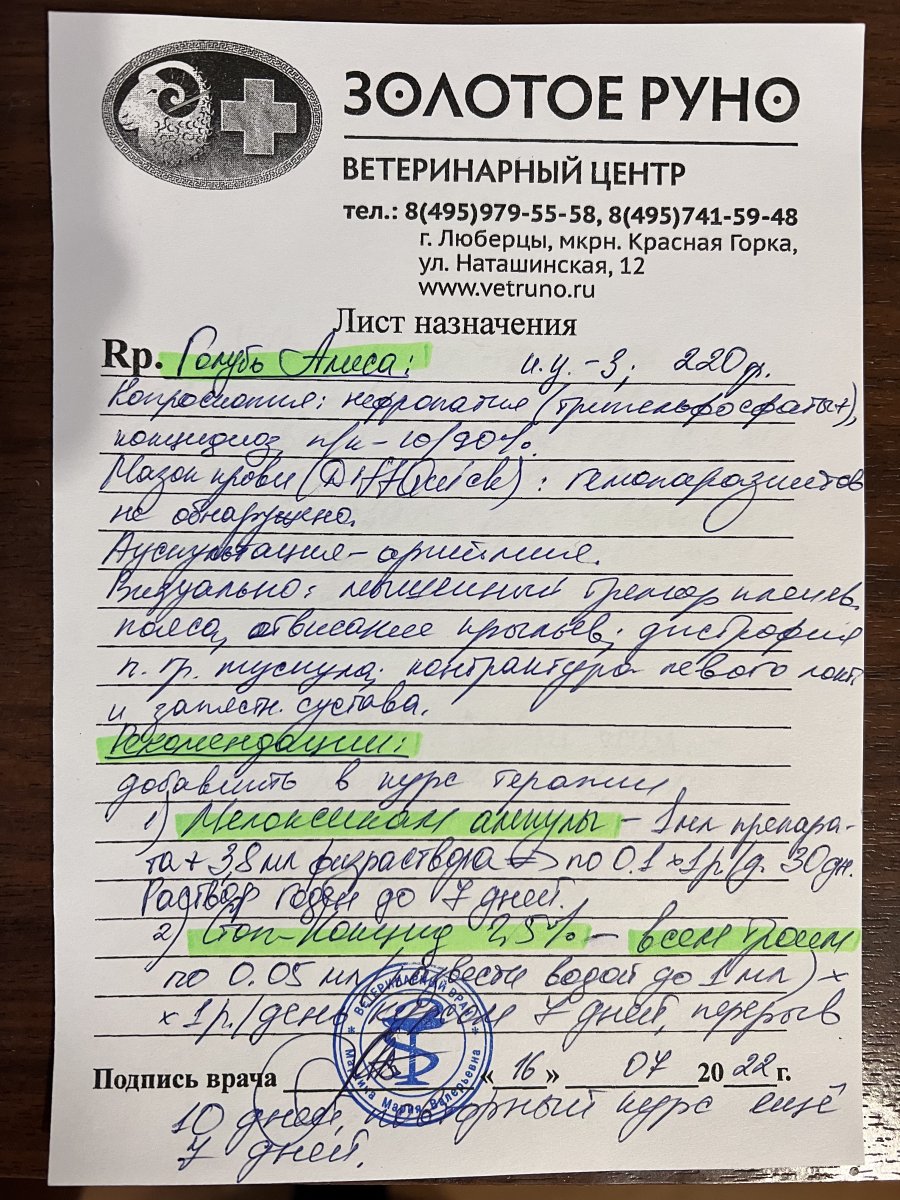 ЗОЛОТОЕ РУНО
ВЕТЕРИНАРНЫЙ ЦЕНТР
тел.: 8(495)979-55-58, 8(495)741-59-48
г. Люберцы, мкрн. Красная Горка,
ул. Наташинская, 12
www.vetruno.ru
Лист назначения
Rp. Голубь Алиса: и.у.-3; 220гр.
Копроскопия: нефропатия (трипельфосфаты+),
кокцидиоз, п/к-10/90%.
Мазок крови (Diff Quick): гемопаразитов
не обнаружено.
Аускультация - аритмия.
Визуально: мышечный тремор плечев.
пояса, отвисание крыльев; дистрофия
п. гр. мускула; контрактура левого локт.
и запястн. сустава.
Рекомендации:
добавить в курс терапии
1) Мелоксикам ампулы - 1 мл препара-
та + 3,8 мл физраствора => по 0.1 х 1р/д. 30дн.
Раствор годен до 7 дней.
2) Стоп-Кокцид 2,5% - всем троим
по 0.05 мл (развести водой до 1 мл) х
х 1 р./день курсом 7 дней, перерыв
Подпись врача «16» 07 2022 г.
10 дней, повторный курс ещё
7 дней.
ВЕТЕРИНАРНЫЙ ВРАЧ
Мария Валерьевна